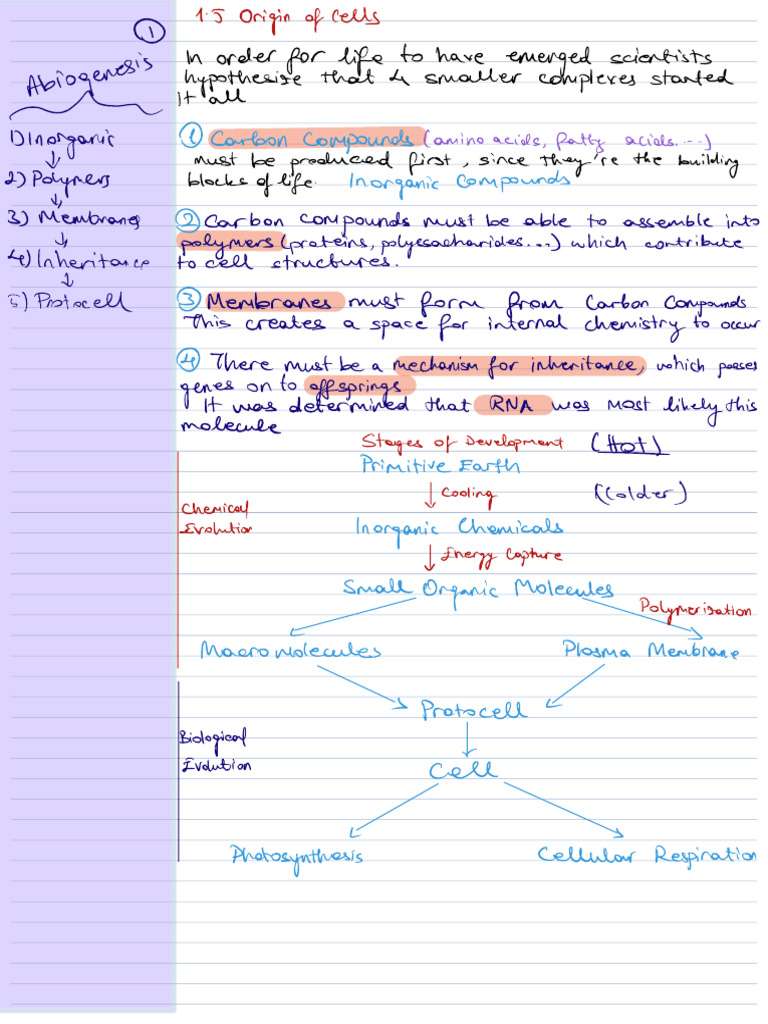 1.5 Origin of Cells
1
Abiogenesis
In order for life to have emerged scientists
hypothesize that 4 smaller complexes started
it all
1) Inorganic
2) Polymers
3) Membranes
4) Inheritance
5) Protocell
1 Carbon Compounds (amino acids, fatty acids....)
must be produced first, since they're the building
blocks of life. Inorganic Compounds
2 Carbon compounds must be able to assemble into
polymers (proteins, polyssacharides...) which contribute
to cell structures.
3 Membranes must form from Carbon Compounds
This creates a space for internal chemistry to occur
4 There must be a mechanism for inheritance, which passes
genes on to offsprings
It was determined that RNA was most likely this
molecule
Stages of Development (Hot)
Primitive Earth
Cooling (Colder)
Chemical
Evolution
Inorganic Chemicals
Energy Capture
Small Organic Molecules
Polymerisation
Macromolecules Plasma Membrane
Protocell
Biological
Evolution
Cell
Photosynthesis Cellular Respiration